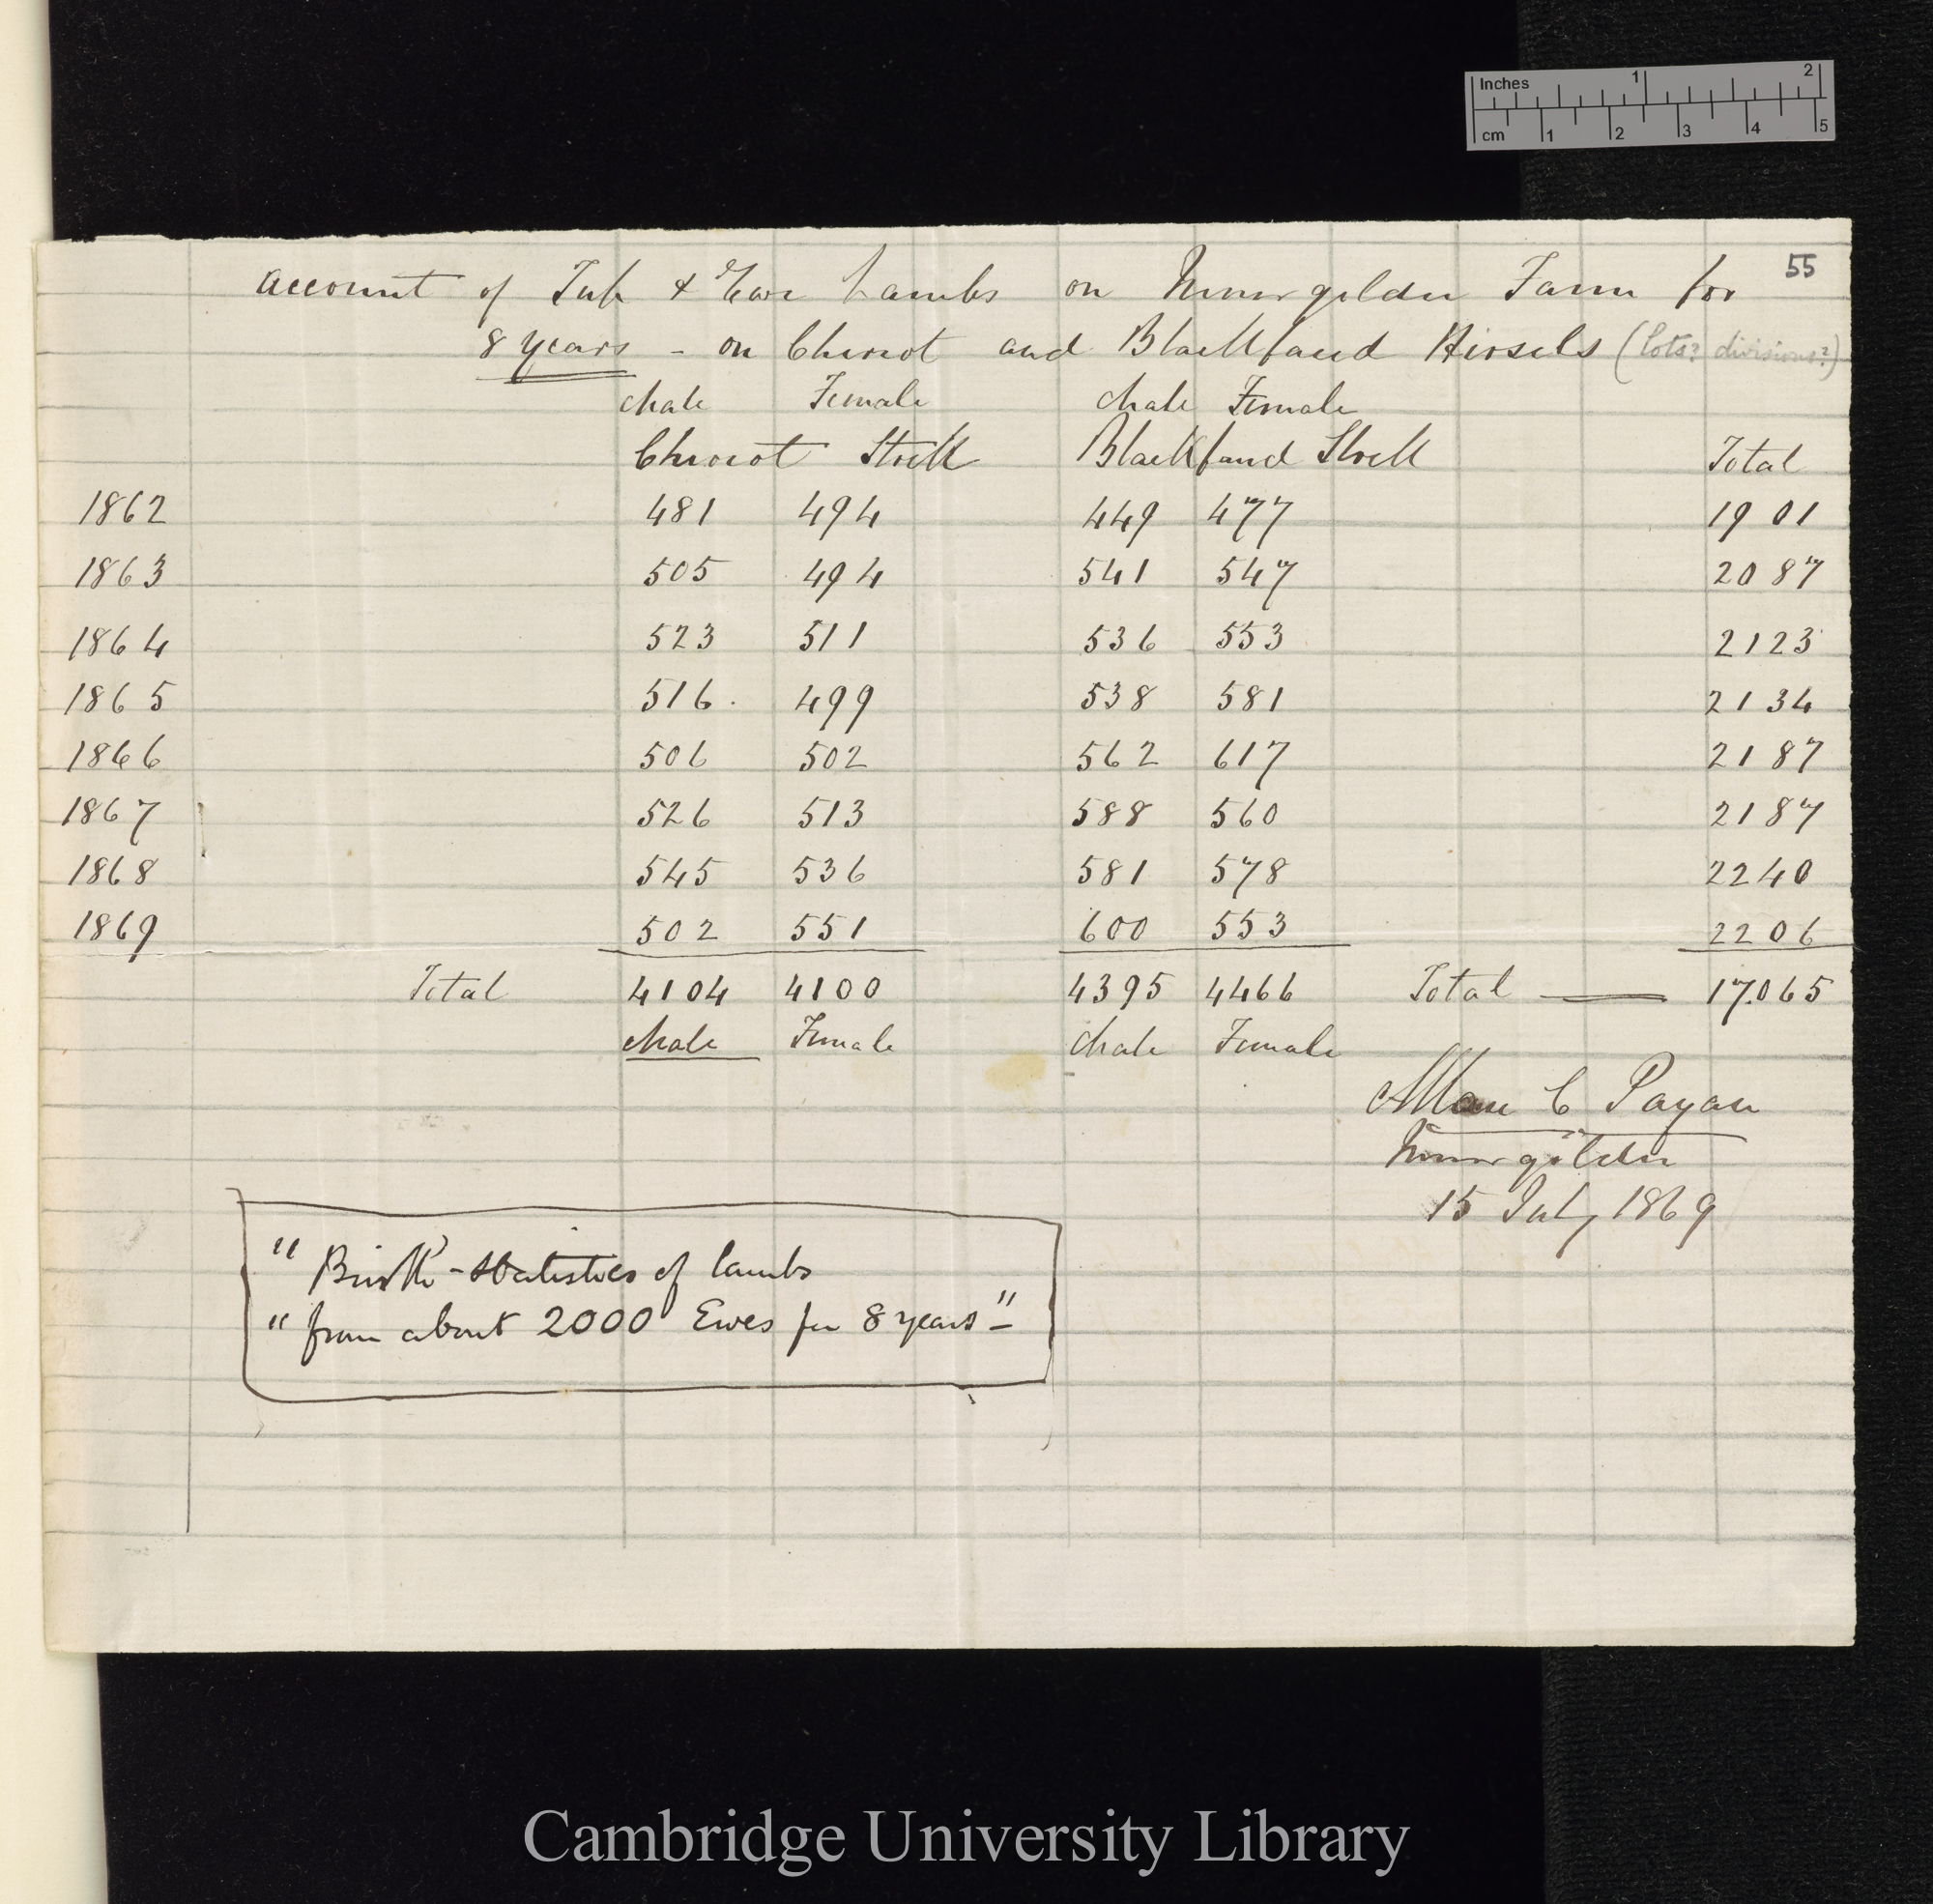 Inches 1 2
cm 1 2 3 4 5
55
account of Tup & Ewe Lambs on Farm for
8 years - on Cheviot and Blackfaced Hirsels (lots? divisions?)
Male Female Male Female
Cheviot Stock Blackfaced Stock Total
1862 481 494 449 477 1901
1863 505 494 541 547 2087
1864 523 511 536 553 2123
1865 516. 499 538 581 2134
1866 506 502 562 617 2187
1867 526 513 588 560 2187
1868 545 536 581 578 2240
1869 502 551 600 553 2206
Total 4104 4100 4395 4466 Total — 17.065
Male Female Male Female
Allan C Payan
15 July 1869
" Birth-statistics of lambs
" from about 2000 Ewes for 8 years" -
Cambridge University Library